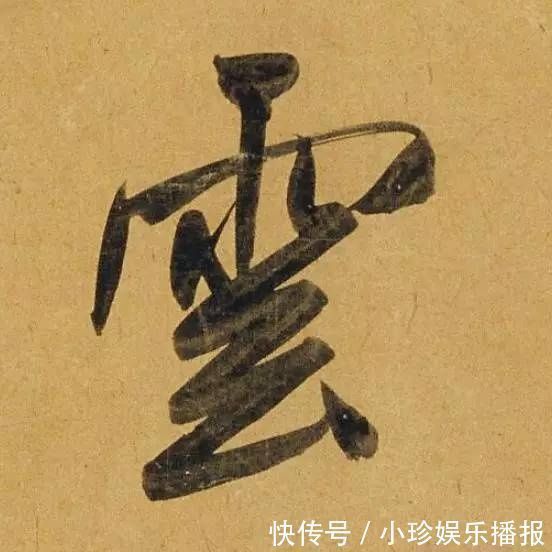 雲
快传号/小珍娱乐播报